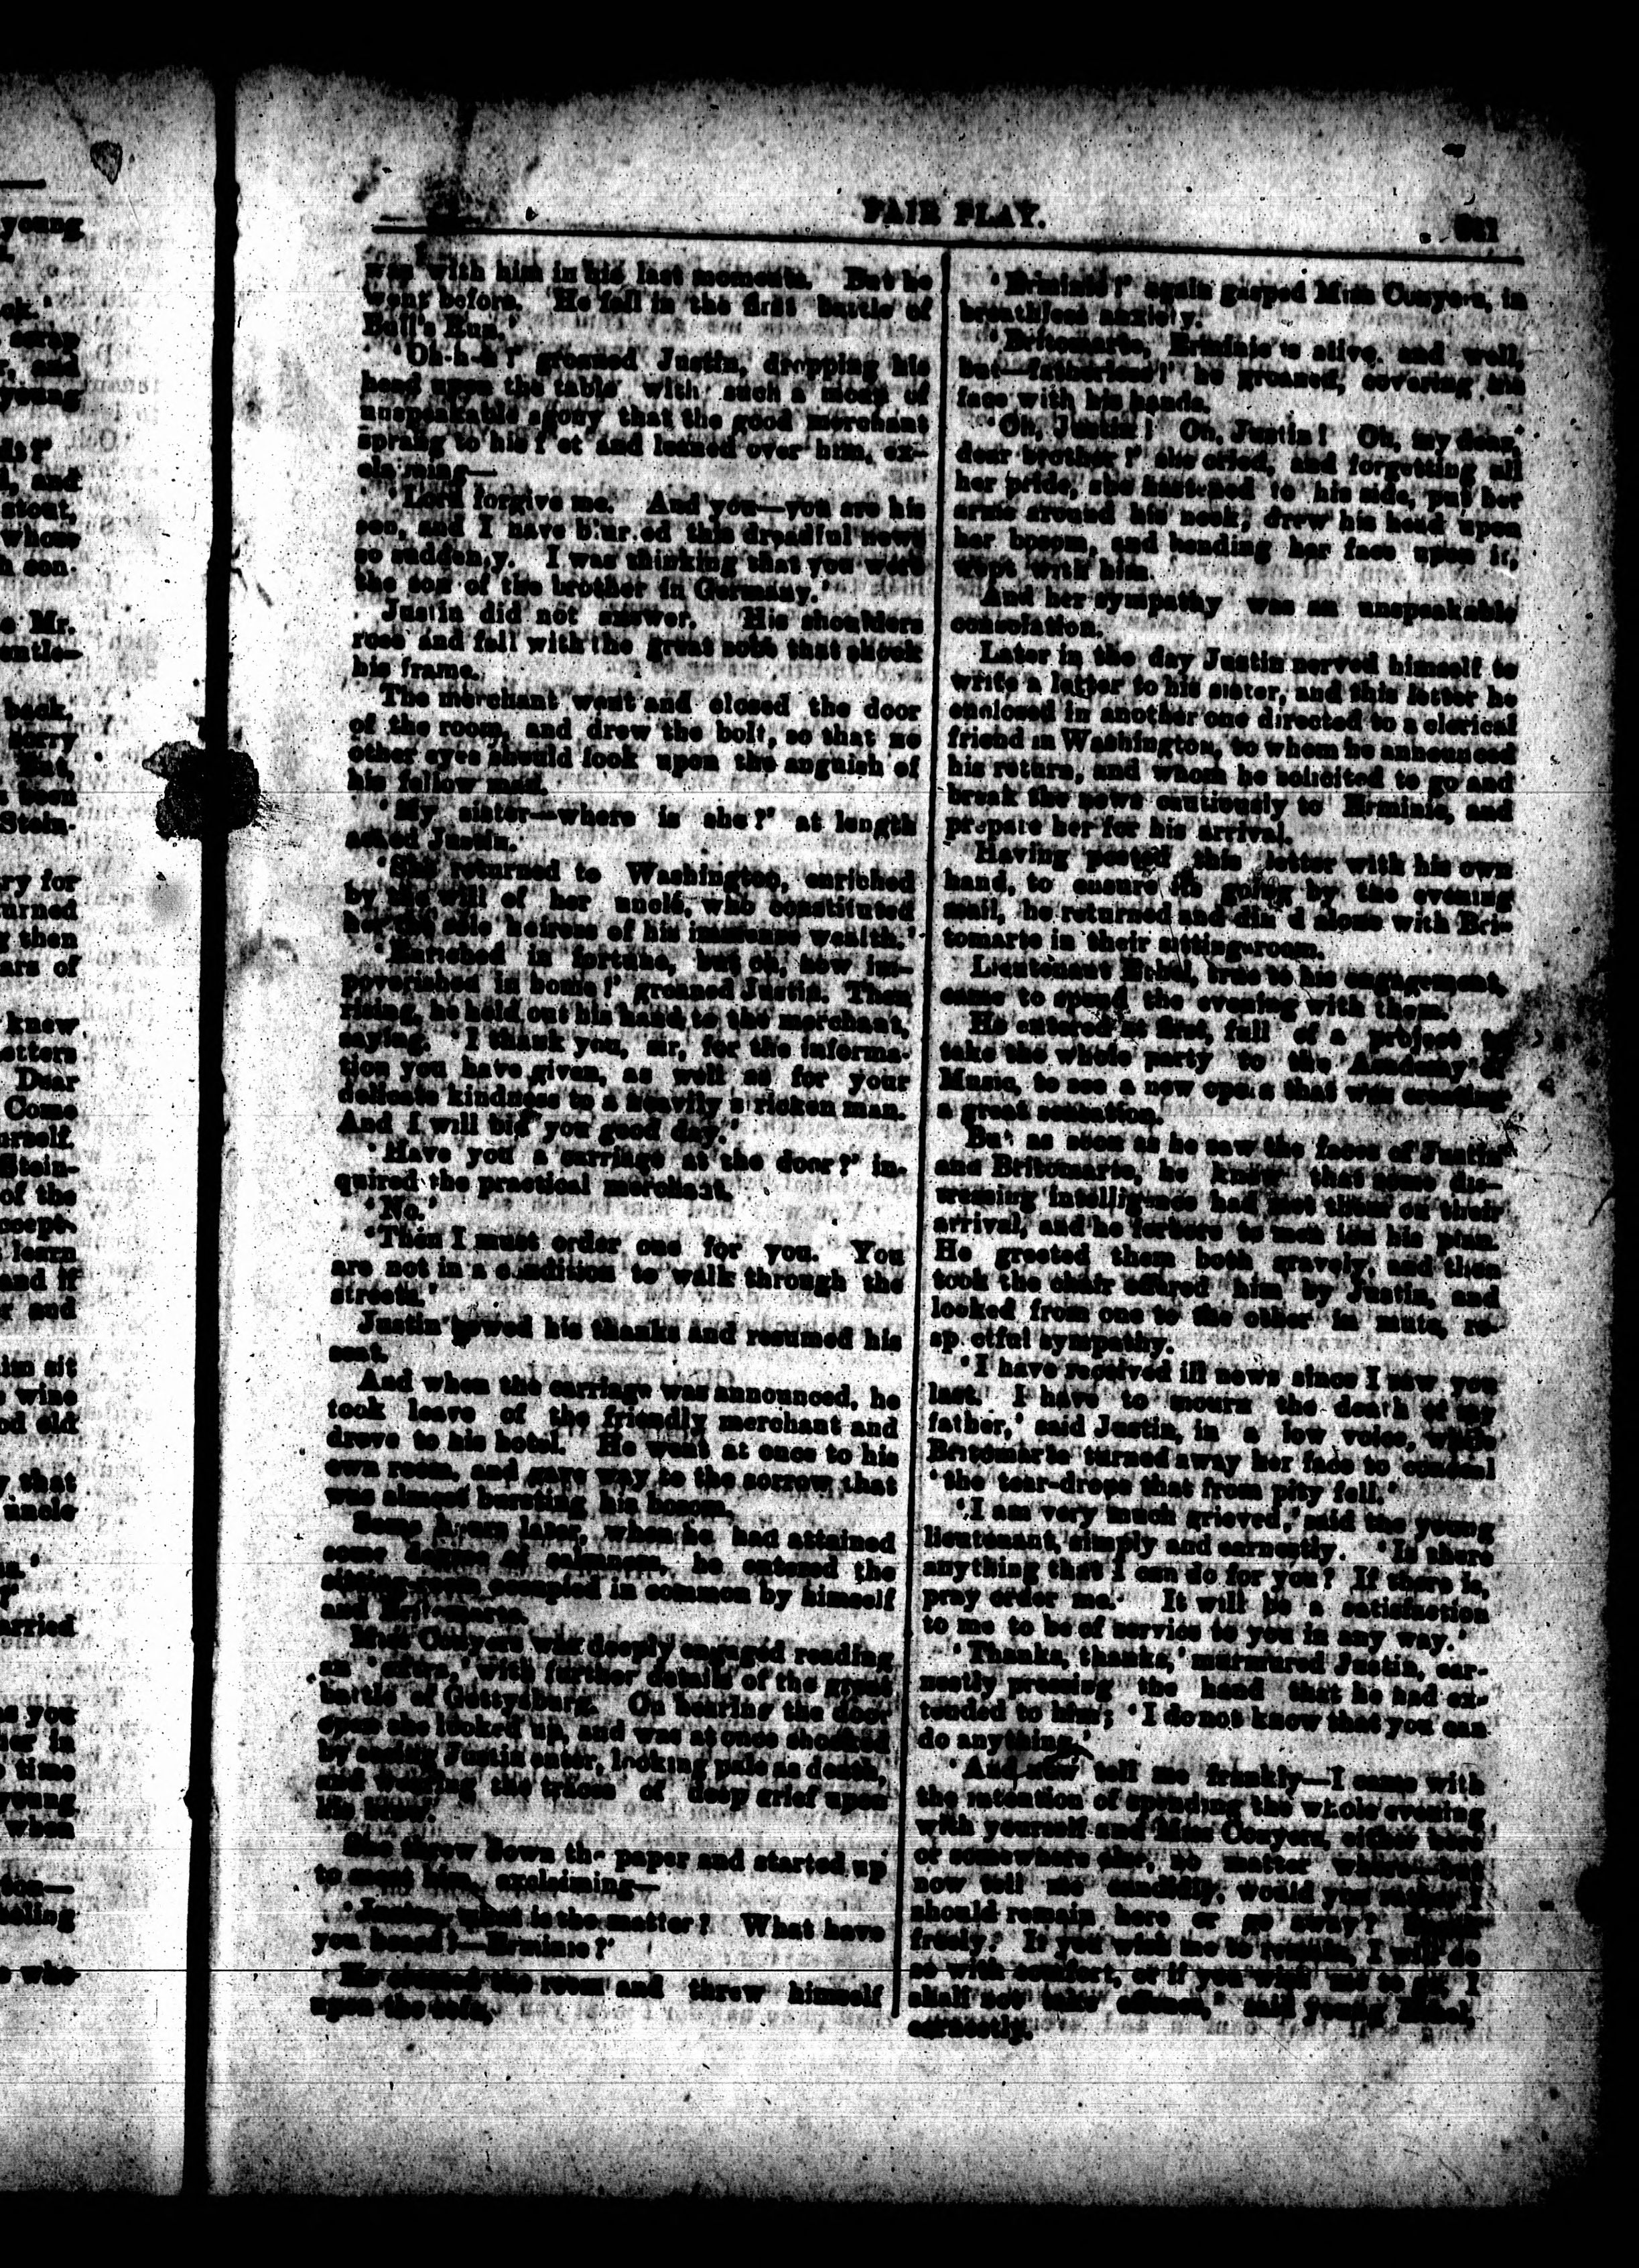 FAIR PLAY.
was with him in his last moments. But he
went before. He fell in the first battle of
Bull's Run.'
'Oh-h-h!' groaned Justin, dropping his
head upon the table with such a moan of
unspeakable agony that the good merchant
sprang to his f et and leaned over him, ex-
claiming—
'Lord forgive me. And you—you are his
son, and I have blurred this dreadful news
so suddenly. I was thinking that you were
the son of the brother in Germany.'
Justin did not answer. His shoulders
rose and fell with the great sobs that shook
his frame.
The merchant went and closed the door
of the room, and drew the bolt, so that no
other eyes should look upon the anguish of
his fellow man.
'My sister—where is she?' at length
asked Justin.
'She returned to Washington, enriched
by the will of her uncle, who constituted
her the sole heiress of his immense wealth.'
'Enriched in fortune, but oh, how im-
poverished in home!' groaned Justin. Then
rising, he held out his hand to the merchant,
saying, 'I thank you, sir, for the informa-
tion you have given, as well as for your
delicate kindness to a heavily s ricken man.
And I will bid you good day.'
'Have you a carriage at the door?' in-
quired the practical merchant.
'No.'
'Then I must order one for you. You
are not in a condition to walk through the
streets.'
Justin bowed his thanks and resumed his
seat.
And when the carriage was announced, he
took leave of the friendly merchant and
drove to his hotel. He went at once to his
own room, and gave way to the sorrow that
was almost bursting his bosom.
Some hours later, when he had attained
some degree of calmness, he entered the
sitting-room occupied in common by himself
and Britomarte.
Miss Conyers was deeply engaged reading
an 'extra,' with further details of the great
battle of Gettysburg. On hearing the door
open she looked up, and was at once shocked
by seeing Justin enter, looking pale as death,
and wearing the traces of deep grief upon
his brow.
She threw down the paper and started up
to meet him, exclaiming—
'Justin, what is the matter? What have
you heard?—Erminie?'
He crossed the room and threw himself
upon the sofa.
'Erminie!' again gasped Miss Conyers, in
breathless anxiety.
'Britomarte, Erminie is alive and well,
but—fatherless!' he groaned, covering his
face with his hands.
'Oh, Justin! Oh, Justin! Oh, my dear,
dear brother!' she cried, and forgetting all
her pride, she hastened to his side, put her
arms around his neck, drew his head upon
her bosom, and bending her face upon it,
wept with him.
And her sympathy was an unspeakable
consolation.
Later in the day Justin nerved himself to
write a letter to his sister, and this letter he
enclosed in another one directed to a clerical
friend in Washington, to whom he announced
his return, and whom he solicited to go and
break the news cautiously to Erminie, and
prepare her for his arrival.
Having posted this letter with his own
hand, to ensure its going by the evening
mail, he returned and din d alone with Bri-
tomarte in their sitting-room.
Lieutenant Ethel, true to his engagement,
came to spend the evening with them.
He entered at first, full of a project to
take the whole party to the Academy of
Music, to see a new opera that was creating
a great sensation.
But as soon as he saw the faces of Justin
and Britomarte, he knew that some dis-
tressing intelligence had met them on their
arrival, and he forbore to men ion his plan.
He greeted them both gravely, and then
took the chair offered him by Justin, and
looked from one to the other in mute, re-
sp ctful sympathy.
'I have received ill news since I saw you
last. I have to mourn the death of my
father,' said Justin, in a low voice, while
Britomarte turned away her face to conceal
'the tear-drops that from pity fell.'
'I am very much grieved,' said the young
lieutenant, simply and earnestly. 'Is there
anything that I can do for you? If there is,
pray order me. It will be a satisfaction
to me to be of service to you in any way.'
'Thanks, thanks,' murmured Justin, ear-
nestly pressing the hand that he had ex-
tended to him; 'I do not know that you can
do anything.'
'And now tell me frankly—I came with
the intention of spending the whole evening
with yourself and Miss Conyers, either here
or somewhere else, no matter where—but
now tell me candidly, would you rather I
should remain here or go away? Speak
freely. If you wish me to remain, I will do
so with comfort, or if you wish me to go, I
shall not take offence,' said young Ethel,
earnestly.